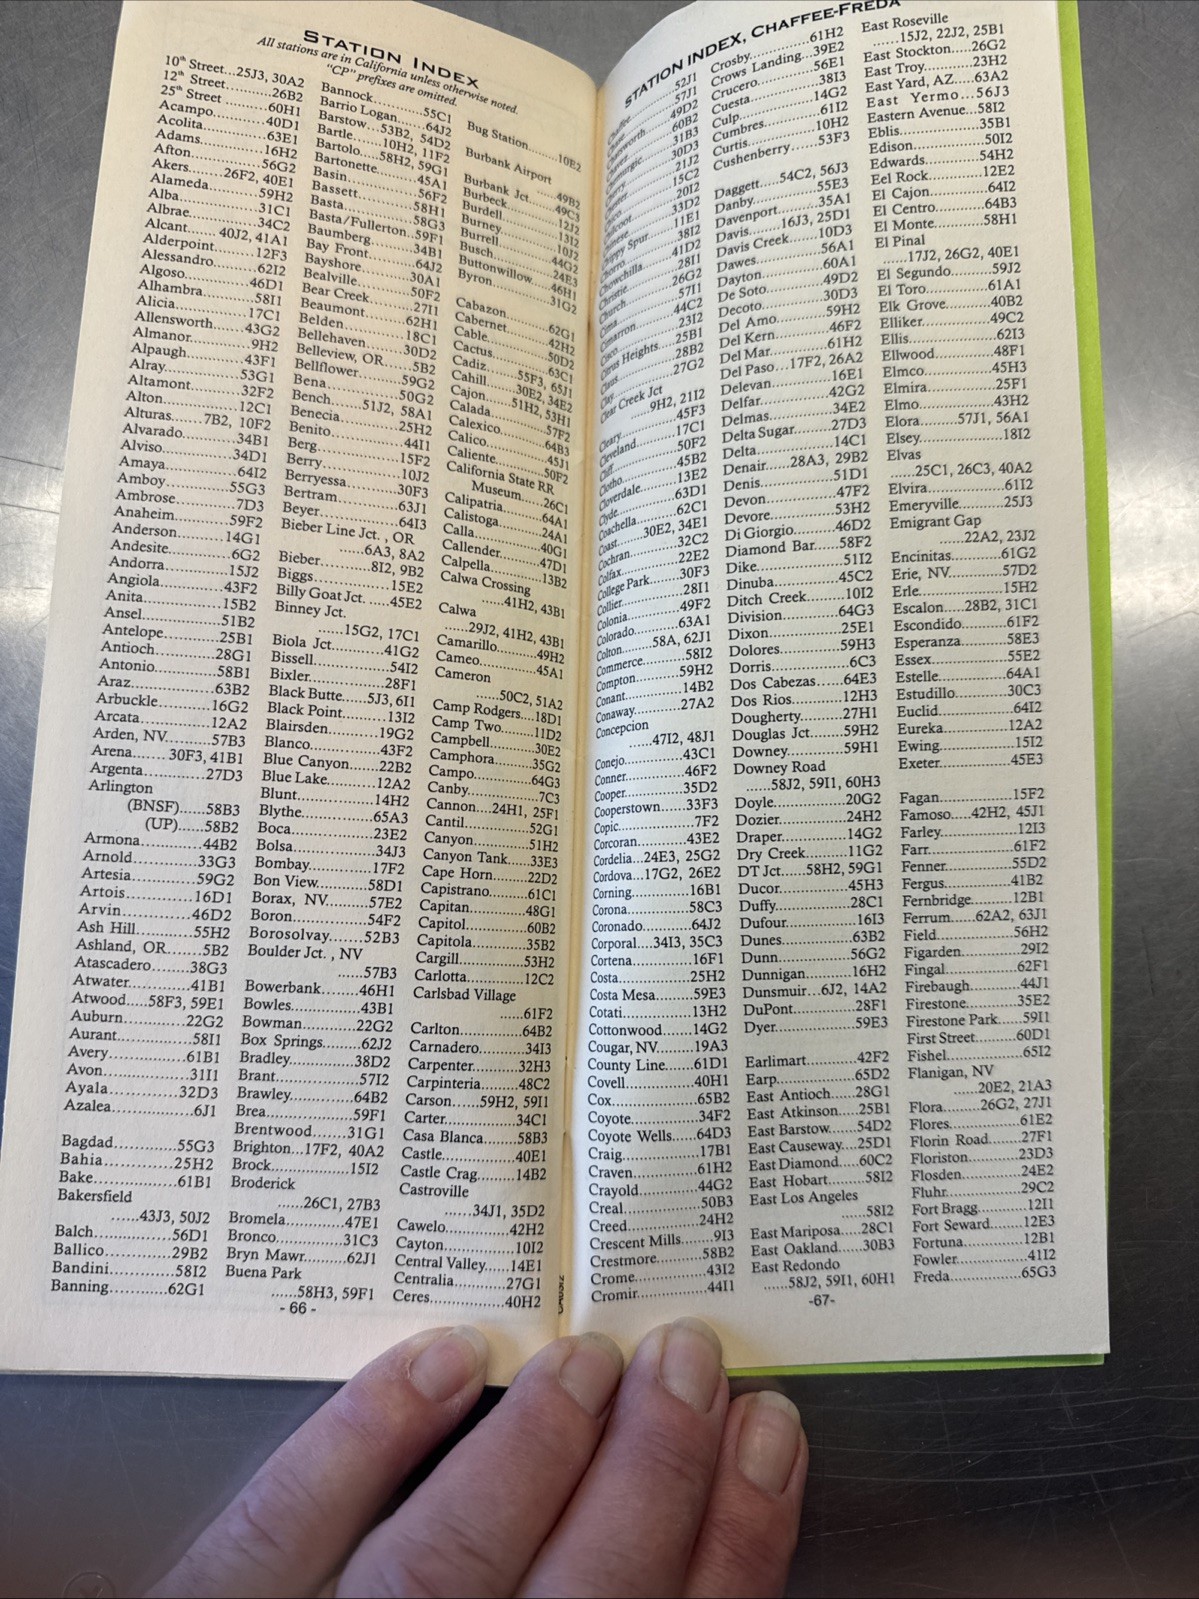 STATION INDEX
All stations are in California unless otherwise noted.
"CP" prefixes are omitted.
10th Street...25J3, 30A2
12th Street............26B2
25th Street ..........60H1
Acampo.............40D1
Acolita.................63E1
Adams................16H2
Afton...................56G2
Akers.......26F2, 40E1
Alameda............59H2
Alba....................31C1
Albrae.................34C2
Alcant.....40J2, 41A1
Alderpoint..........12F3
Alessandro..........62I2
Algoso................46D1
Alhambra............58I1
Alicia..................17C1
Allensworth.......43G2
Almanor..............9H2
Alpaugh..............43F1
Alray...................53G1
Altamont.............32F2
Alton..................12C1
Alturas......7B2, 10F2
Alvarado.............34B1
Alviso.................34D1
Amaya.................64I2
Amboy...............55G3
Ambrose..............7D3
Anaheim.............59F2
Anderson............14G1
Andesite..............6G2
Andorra...............15J2
Angiola...............43F2
Anita...................15B2
Ansel...................51B2
Antelope.............25B1
Antioch..............28G1
Antonio..............58B1
Araz....................63B2
Arbuckle............16G2
Arcata.................12A2
Arden, NV..........57B3
Arena.......30F3, 41B1
Argenta..............27D3
Arlington
(BNSF)......58B3
(UP).......58B2
Armona..............44B2
Arnold................33G3
Artesia................59G2
Artois.................16D1
Arvin..................46D2
Ash Hill..............55H2
Ashland, OR........5B2
Atascadero..........38G3
Atwater...............41B1
Atwood.....58F3, 59E1
Auburn...............22G2
Aurant.................58I1
Avery..................61B1
Avon...................31I1
Ayala..................32D3
Azalea..................6J1
Bagdad...............55G3
Bahia..................25H2
Bake...................61B1
Bakersfield
......43J3, 50J2
Balch..................56D1
Ballico................29B2
Bandini...............58I2
Banning..............62G1
Bannock.............55C1
Barrio Logan......64J2
Barstow...53B2, 54D2
Bartle......10H2, 11F2
Bartolo....58H2, 59G1
Bartonette..........45A1
Basin..................56F2
Bassett................58H1
Basta..................58G3
Basta/Fullerton..59F1
Baumberg...........34B1
Bay Front...........64J2
Bayshore............30A1
Bealville.............50F2
Bear Creek..........27I1
Beaumont...........62H1
Belden................18C1
Bellehaven.........30D2
Belleview, OR......5B2
Bellflower..........59G2
Bena...................50G2
Bench......51J2, 58A1
Benecia..............25H2
Benito.................44I1
Berg...................15F2
Berry..................10J2
Berryessa............30F3
Bertram..............63J1
Beyer.................64I3
Bieber Line Jct. , OR
......6A3, 8A2
Bieber........8I2, 9B2
Biggs..................15E2
Billy Goat Jct. .....45E2
Binney Jct.
......15G2, 17C1
Biola Jct.............41G2
Bissell................54I2
Bixler.................28F1
Black Butte.....5J3, 6I1
Black Point.........13I2
Blairsden............19G2
Blanco................43F2
Blue Canyon.......22B2
Blue Lake...........12A2
Blunt..................14H2
Blythe.................65A3
Boca...................23E2
Bolsa..................34J3
Bombay..............17F2
Bon View...........58D1
Borax, NV..........57E2
Boron.................54F2
Borosolvay.........52B3
Boulder Jct. , NV
......57B3
Bowerbank.........46H1
Bowles...............43B1
Bowman.............22G2
Box Springs.......62J2
Bradley...............38D2
Brant..................57I2
Brawley..............64B2
Brea...................59F1
Brentwood.........31G1
Brighton...17F2, 40A2
Brock.................15I2
Broderick
......26C1, 27B3
Bromela..............47E1
Bronco................31C3
Bryn Mawr.........62J1
Buena Park
......58H3, 59F1
Bug Station.........10E2
Burbank Airport
......49B2
Burbank Jct........49C3
Burbeck..............12J2
Burdell...............13I2
Burney................10J2
Burrell................44G2
Busch.................24E3
Buttonwillow.....46H1
Byron.................31G2
Cabazon.............62G1
Cabernet.............42H2
Cable..................50D2
Cactus................63C1
Cadiz.......55F3, 65J1
Cahill......30E2, 34E2
Cajon......51H2, 53H1
Calada................57F2
Calexico.............64B3
Calico.................45J1
Caliente..............50F2
California State RR
Museum......26C1
Calipatria............64A1
Calistoga............24A1
Calla...................40G1
Callender............47D1
Calpella..............13B2
Calwa Crossing
......41H2, 43B1
Calwa
......29J2, 41H2, 43B1
Camarillo............49H2
Cameo................45A1
Cameron
......50C2, 51A2
Camp Rodgers....18D1
Camp Two..........11D2
Campbell............30E2
Camphora..........35G2
Campo................64G3
Canby.................7C3
Cannon....24H1, 25F1
Cantil.................52G1
Canyon...............51H2
Canyon Tank......33E3
Cape Horn..........22D2
Capistrano..........61C1
Capitan..............48G1
Capitol...............60B2
Capitola.............35B2
Cargill................53H2
Carlotta..............12C2
Carlsbad Village
......61F2
Carlton...............64B2
Carnadero...........34I3
Carpenter............32H3
Carpinteria.........48C2
Carson......59H2, 59I1
Carter.................34C1
Casa Blanca........58B3
Castle.................40E1
Castle Crag.........14B2
Castroville
......34J1, 35D2
Cawelo...............42H2
Cayton................10I2
Central Valley.....14E1
Centralia............27G1
Ceres..................40H2
- 66 -
STATION INDEX, CHAFFEE-FREDA
Chaffee...............52J1
57J1
Chatsworth.........49D2
60B2
Chemurgic.........31B3
30D3
21J2
15C2
20I2
Chinese..............33D2
Chippy Spur.......11E1
Chorro...............38I2
Chowchilla........41D2
Christie..............28I1
Church...............26G2
Cima..................57I1
Cimarron...........44C2
Cisco..................23I2
Citrus Heights....25B1
Claus.................28B2
Clay...................27G2
Clear Creek Jct
......9H2, 21I2
Cleary................45F3
Cleveland..........17C1
Cliff...................50F2
Clotho................45B2
Cloverdale.........13E2
Clyde.................63D1
Coachella...........62C1
Coast.......30E2, 34E1
Cochran.............32C2
Colfax................22E2
College Park.......30F3
Collier................28I1
Colonia..............49F2
Colorado............63A1
Colton......58A, 62J1
Commerce..........58I2
Compton............59H2
Conant...............14B2
Conaway............27A2
Concepcion
......47I2, 48J1
Conejo...............43C1
Conner...............46F2
Cooper...............35D2
Cooperstown......33F3
Copic.................7F2
Corcoran............43E2
Cordelia...24E3, 25G2
Cordova...17G2, 26E2
Corning..............16B1
Corona...............58C3
Coronado...........64J2
Corporal...34I3, 35C3
Cortena..............16F1
Costa..................25H2
Costa Mesa.........59E3
Cotati.................13H2
Cottonwood.......14G2
Cougar, NV........19A3
County Line.......61D1
Covell................40H1
Cox....................65B2
Coyote...............34F2
Coyote Wells......64D3
Craig..................17B1
Craven...............61H2
Crayold..............44G2
Creal..................50B3
Creed.................24H2
Crescent Mills......9I3
Crestmore..........58B2
Crome................43I2
Cromir...............44I1
Crosby................61H2
Crows Landing...39E2
Crucero..............56E1
Cuesta................38I3
Culp...................14G2
Cumbres.............61I2
Curtis.................10H2
Cushenberry.......53F3
Daggett....54C2, 56J3
Danby................55E3
Davenport..........35A1
Davis.......16J3, 25D1
Davis Creek........10D3
Dawes................56A1
Dayton...............60A1
De Soto..............49D2
Decoto...............30D3
Del Amo.............59H2
Del Kern.............46F2
Del Mar..............61H2
Del Paso...17F2, 26A2
Delevan..............16E1
Delfar.................42G2
Delmas...............34E2
Delta Sugar.........27D3
Delta..................14C1
Denair.....28A3, 29B2
Denis.................51D1
Devon................47F2
Devore...............53H2
Di Giorgio..........46D2
Diamond Bar......58F2
Dike...................51I2
Dinuba...............45C2
Ditch Creek........10I2
Division.............64G3
Dixon.................25E1
Dolores...............59H3
Dorris.................6C3
Dos Cabezas.......64E3
Dos Rios............12H3
Dougherty..........27H1
Douglas Jct........59H2
Downey..............59H1
Downey Road
......58J2, 59I1, 60H3
Doyle.................20G2
Dozier................24H2
Draper................14G2
Dry Creek...........11G2
DT Jct......58H2, 59G1
Ducor.................45H3
Duffy.................28C1
Dufour................16I3
Dunes.................63B2
Dunn..................56G2
Dunnigan...........16H2
Dunsmuir...6J2, 14A2
DuPont...............28F1
Dyer...................59E3
Earlimart............42F2
Earp...................65D2
East Antioch.......28G1
East Atkinson.....25B1
East Barstow.......54D2
East Causeway....25D1
East Diamond.....60C2
East Hobart.........58I2
East Los Angeles
......58I2
East Mariposa.....28C1
East Oakland......30B3
East Redondo
......58J2, 59I1, 60H1
East Roseville
......15J2, 22J2, 25B1
East Stockton.....26G2
East Troy............23H2
East Yard, AZ......63A2
East Yermo...56J3
Eastern Avenue...58I2
Eblis...................35B1
Edison................50I2
Edwards.............54H2
Eel Rock.............12E2
El Cajon.............64I2
El Centro............64B3
El Monte.............58H1
El Pinal
......17J2, 26G2, 40E1
El Segundo.........59J2
El Toro...............61A1
Elk Grove...........40B2
Elliker................49C2
Ellis...................62I3
Ellwood.............48F1
Elmco.................45H3
Elmira................25F1
Elmo..................43H2
Elora.......57J1, 56A1
Elsey..................18I2
Elvas
......25C1, 26C3, 40A2
Elvira.................61I2
Emeryville..........25J3
Emigrant Gap
......22A2, 23J2
Encinitas............61G2
Erie, NV.............57D2
Erle....................15H2
Escalon....28B2, 31C1
Escondido..........61F2
Esperanza...........58E3
Essex.................55E2
Estelle................64A1
Estudillo............30C3
Euclid................64I2
Eureka...............12A2
Ewing................15I2
Exeter................45E3
Fagan.................15F2
Famoso....42H2, 45J1
Farley.................12I3
Farr....................61F2
Fenner................55D2
Fergus................41B2
Fernbridge..........12B1
Ferrum....62A2, 63J1
Field...................56H2
Figarden.............29I2
Fingal.................62F1
Firebaugh...........44J1
Firestone............35E2
Firestone Park....59I1
First Street.........60D1
Fishel.................65I2
Flanigan, NV
......20E2, 21A3
Flora.......26G2, 27J1
Flores.................61E2
Florin Road........27F1
Floriston............23D3
Flosden..............24E2
Fluhr..................29C2
Fort Bragg..........12I1
Fort Seward........12E3
Fortuna..............12B1
Fowler................41I2
Freda..................65G3
-67-